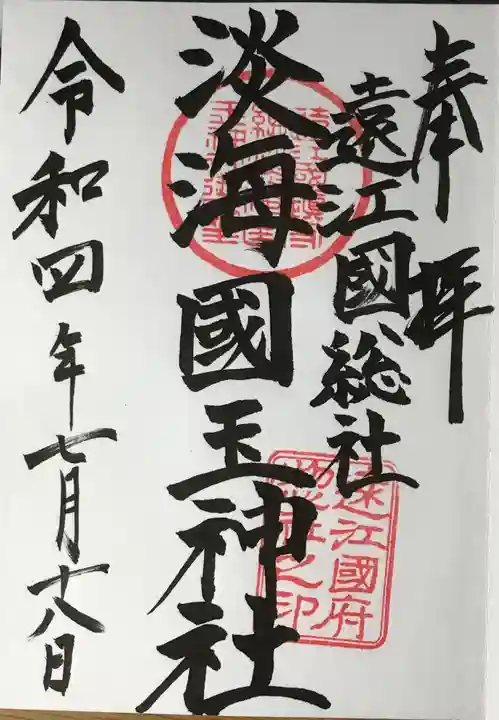 奉拝
遠江國総社
淡海國玉神社
令和四年七月十八日
遠江國府
総社之印